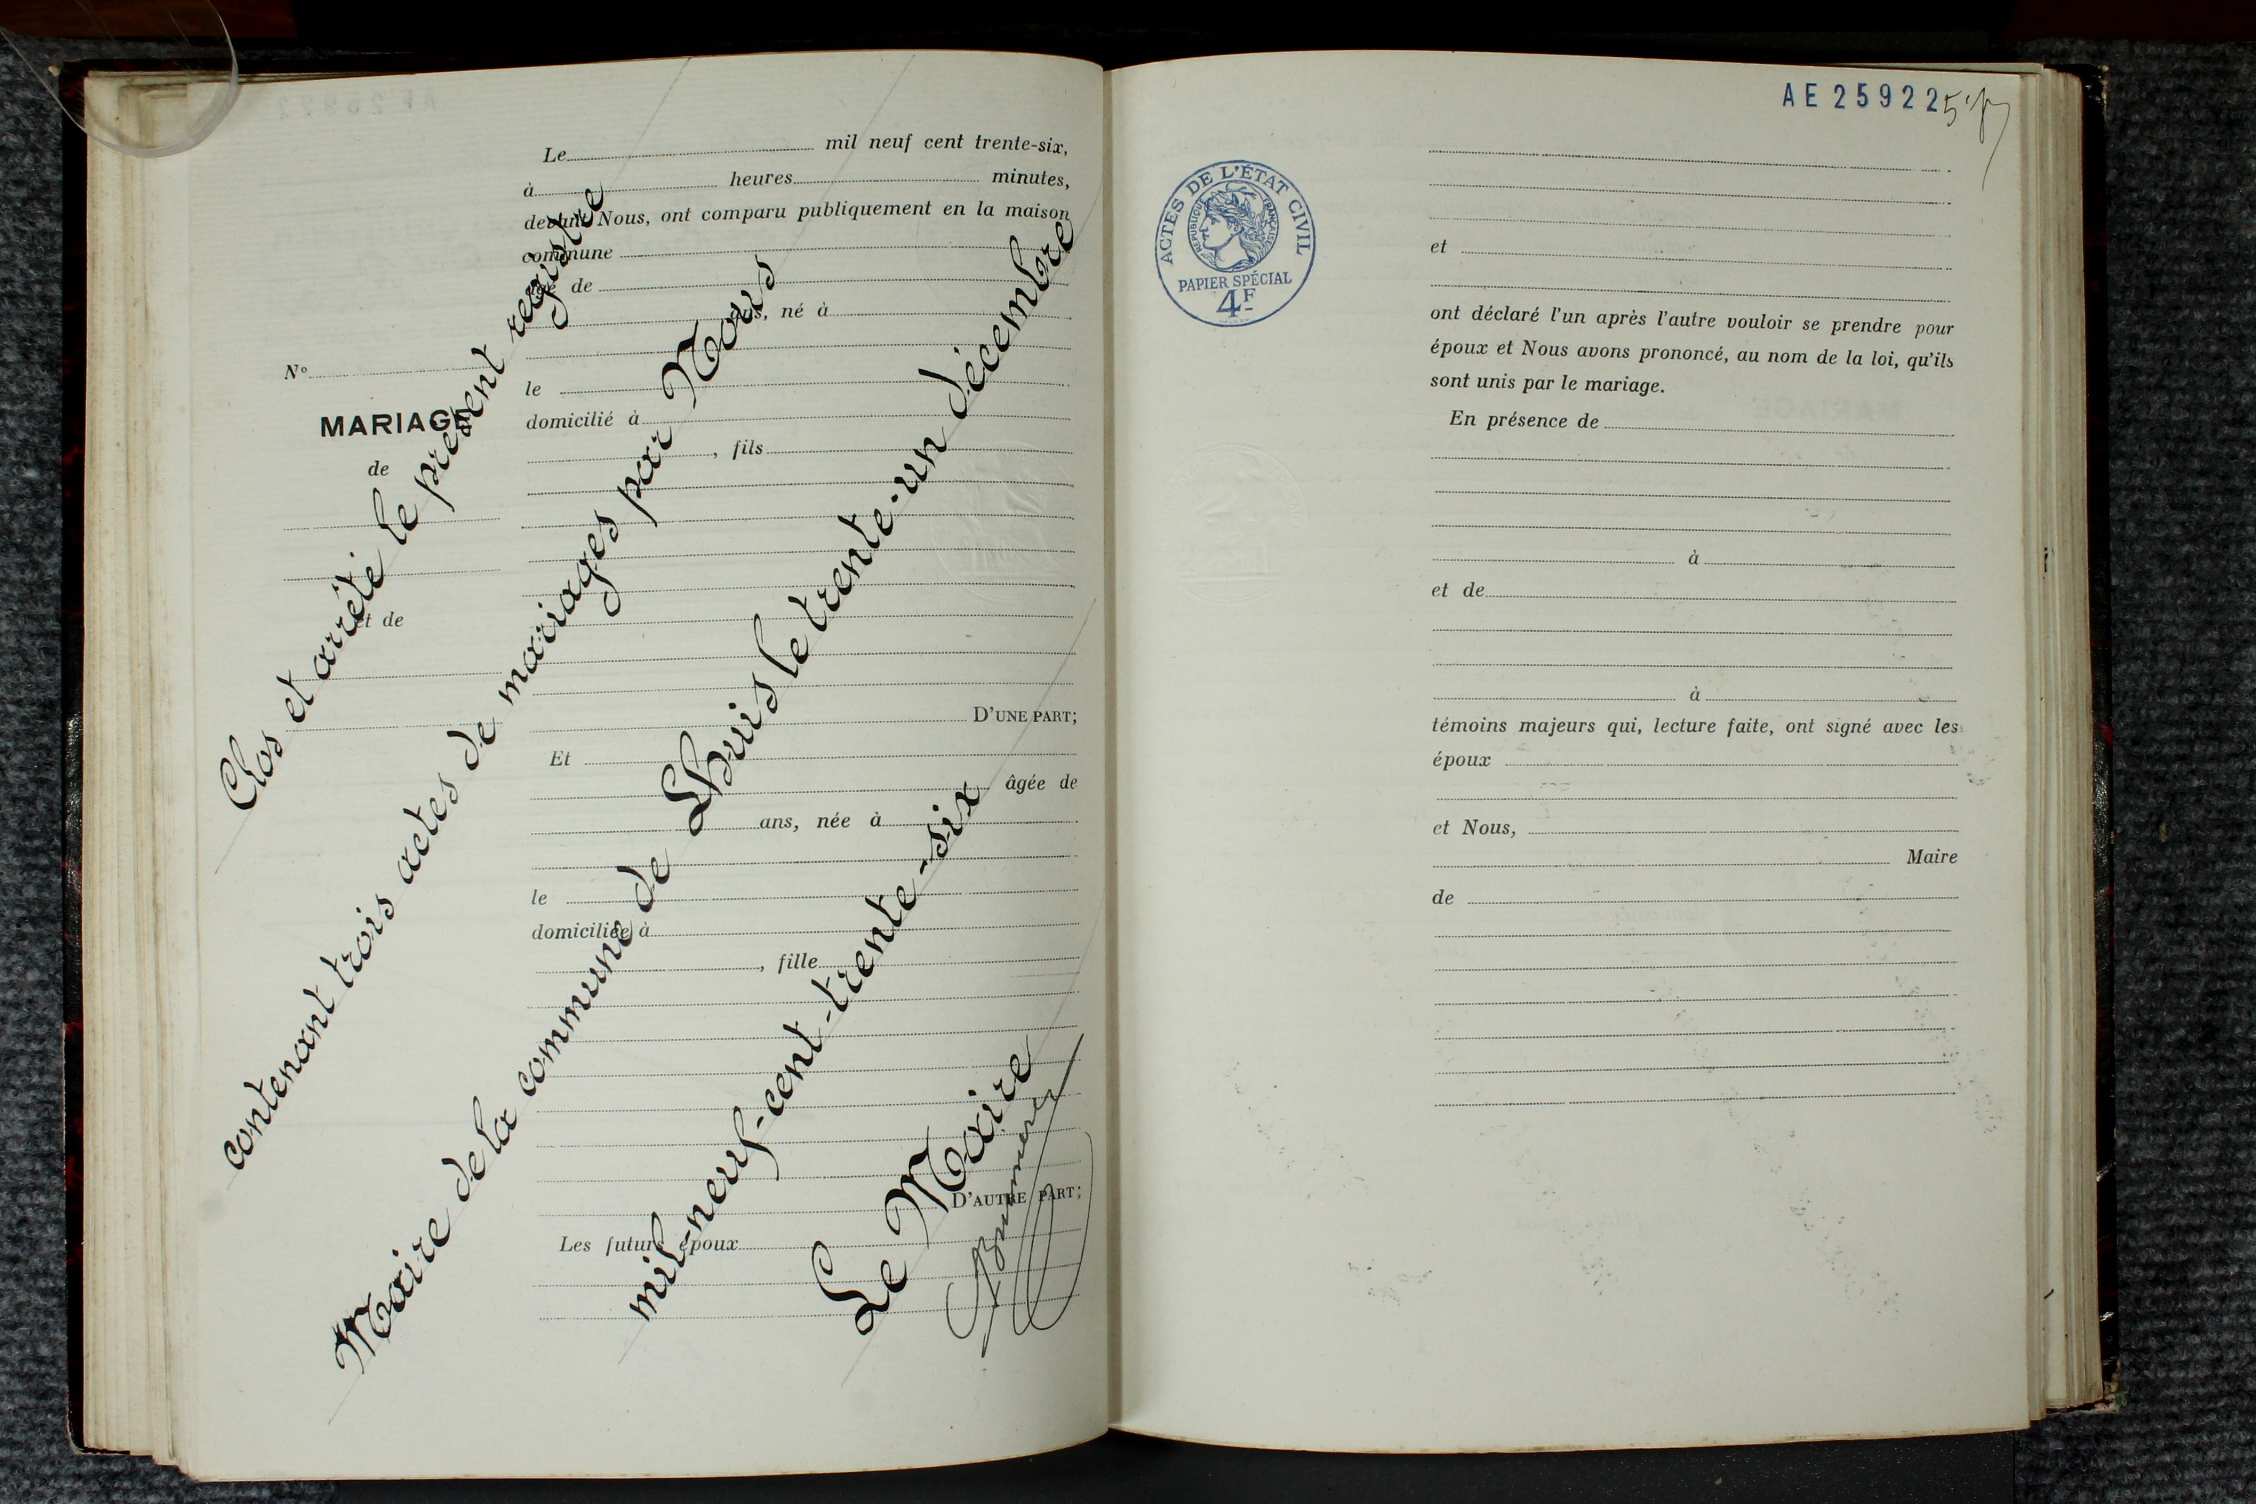 Le mil neuf cent trente-six,
à heures minutes,
devant Nous, ont comparu publiquement en la maison
commune
âgé de
ans, né à
le
domicilié à
, fils
D'UNE PART;
Et
âgée de
ans, née à
le
domiciliée à
, fille
D'AUTRE PART;
Les futurs époux
N°
MARIAGE
de
et de
Clos et arrêté le présent registre
contenant trois actes de mariages par Nous
Maire de la commune de Lhuis le trente-un décembre
mil-neuf-cent-trente-six
Le Maire
AE 25922
5
ACTES DE L'ÉTAT CIVIL
RÉPUBLIQUE FRANÇAISE
PAPIER SPÉCIAL
4F
et
ont déclaré l'un après l'autre vouloir se prendre pour
époux et Nous avons prononcé, au nom de la loi, qu'ils
sont unis par le mariage.
En présence de
à
et de
à
témoins majeurs qui, lecture faite, ont signé avec les
époux
et Nous,
Maire
de